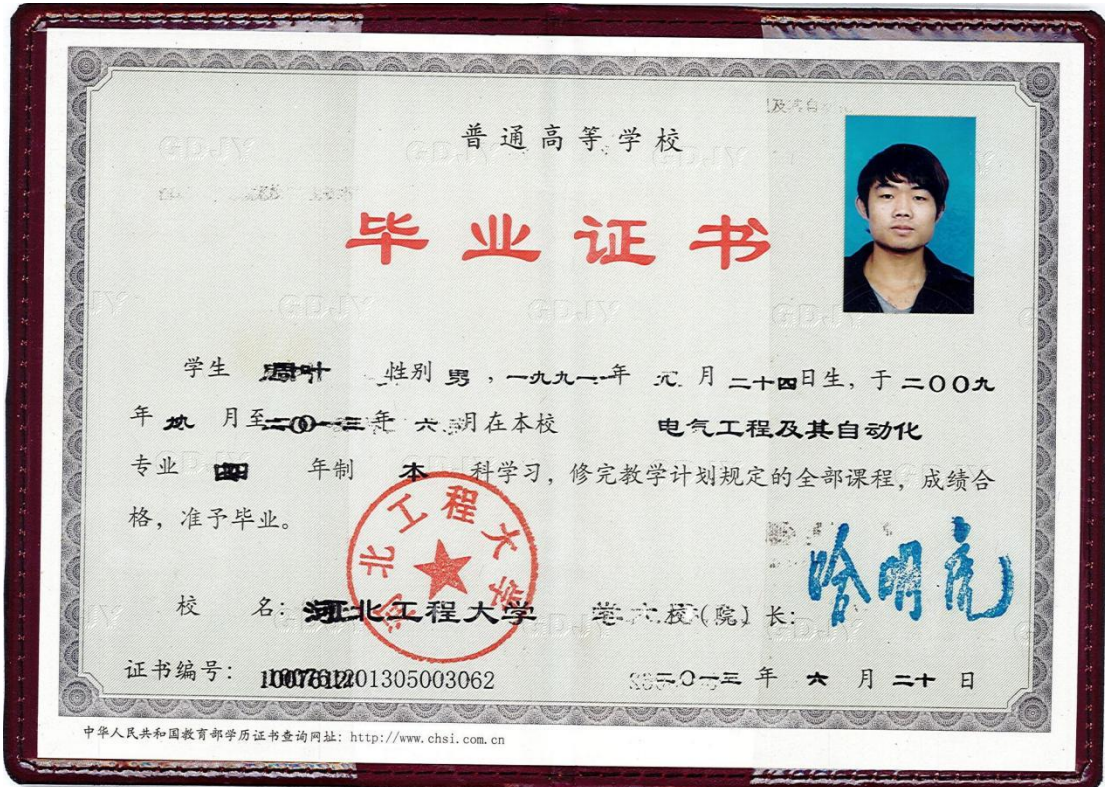 普通高等学校
毕业证书
学生 性别 男，一九九一年 元 月 二十四日生，于二〇〇九
年 九 月至二〇一三年 六 月在本校 电气工程及其自动化
专业 四 年制 本 科学习，修完教学计划规定的全部课程，成绩合
格，准予毕业。
河北工程大学
校 名：河北工程大学 校(院)长：哈明虎
证书编号： 201305003062 二〇一三 年 六 月 二十 日
中华人民共和国教育部学历证书查询网址：http://www.chsi.com.cn
GDJY